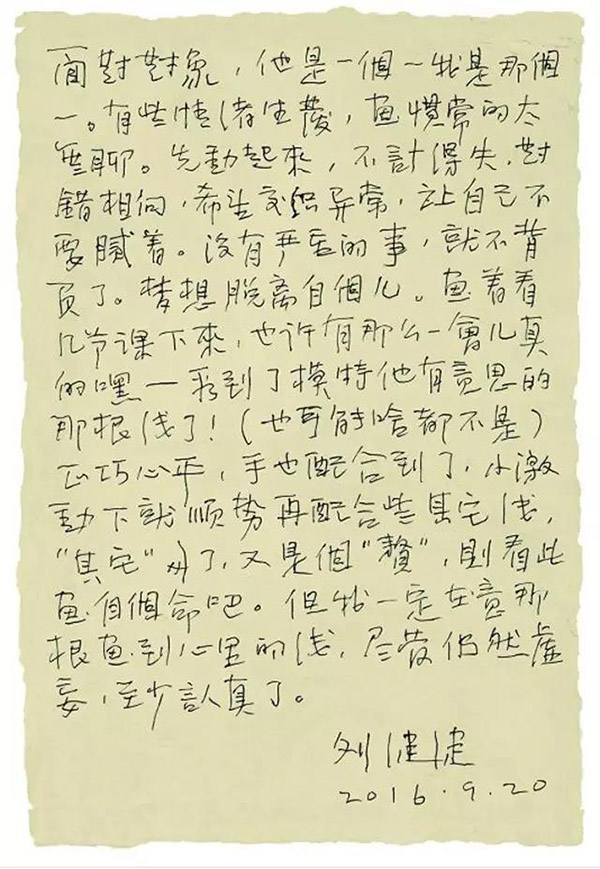 面對對象，他是一個一我是那個
一。有些情绪生發，画惯常的太
無聊。先動起來，不計得失，對
錯相向，希望交织异常，让自己不
要腻着。没有严重的事，就不背
負了。梦想脱离自個儿。画着看
几节课下來，也许有那么一會儿真
的嘿一 到了模特他有意思的
那根线了！（也可能啥都不是）
正巧心平，手也配合到了，小激
動下就顺势再配合些其它线，
“其它” 了，又是個“赘”，則看此
画自個命吧。但我一定在意那
根画到心里的线，尽管仍然虚
妄，至少認真了。
刘健健
2016.9.20